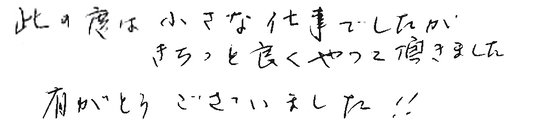 此の度は小さな仕事でしたが
きちっと良くやって頂きました
有がとうございました!!